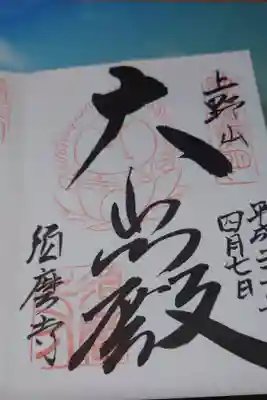 上野山
平成二十
四月七日
大悲殿
須磨寺